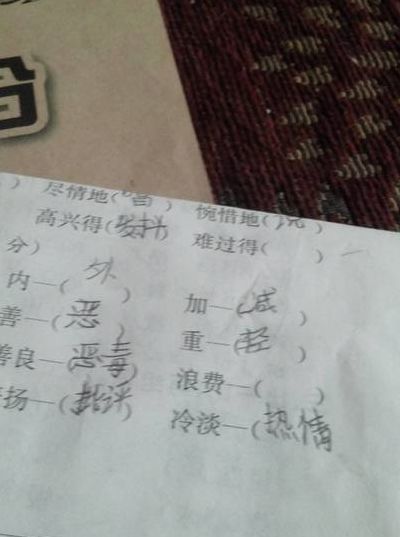 台
）尽情地（唱）惋惜地（说）
高兴得（发抖）难过得（ ）
分）
内—（外） 加—（减）
善—（恶） 重—（轻）
善良—（恶毒） 浪费—（ ）
扬—（批评） 冷淡—（热情）